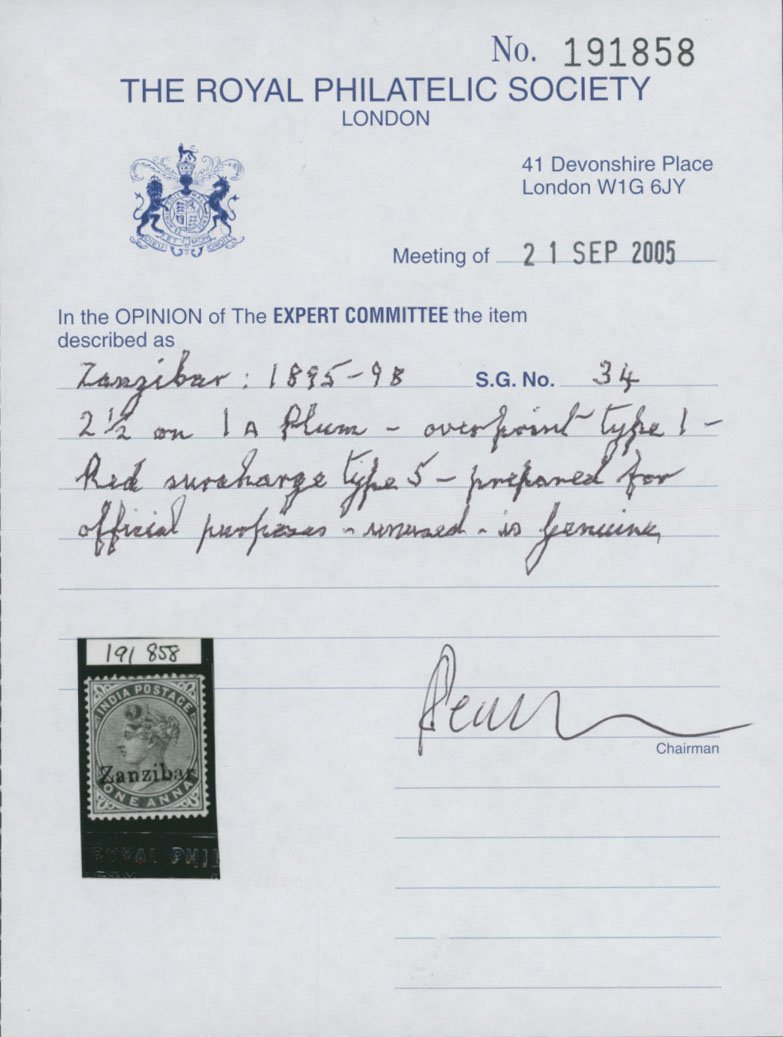 No. 191858
THE ROYAL PHILATELIC SOCIETY
LONDON
41 Devonshire Place
London W1G 6JY
Meeting of 21 SEP 2005
In the OPINION of The EXPERT COMMITTEE the item
described as
Zanzibar: 1895-98 S.G. No. 34
2½ on 1A Plum - overprint type 1 -
Red surcharge type 5 - prepared for
official purposes - unused - is genuine
191 858
INDIA POSTAGE
Zanzibar
ONE ANNA
ROYAL PHIL
Chairman